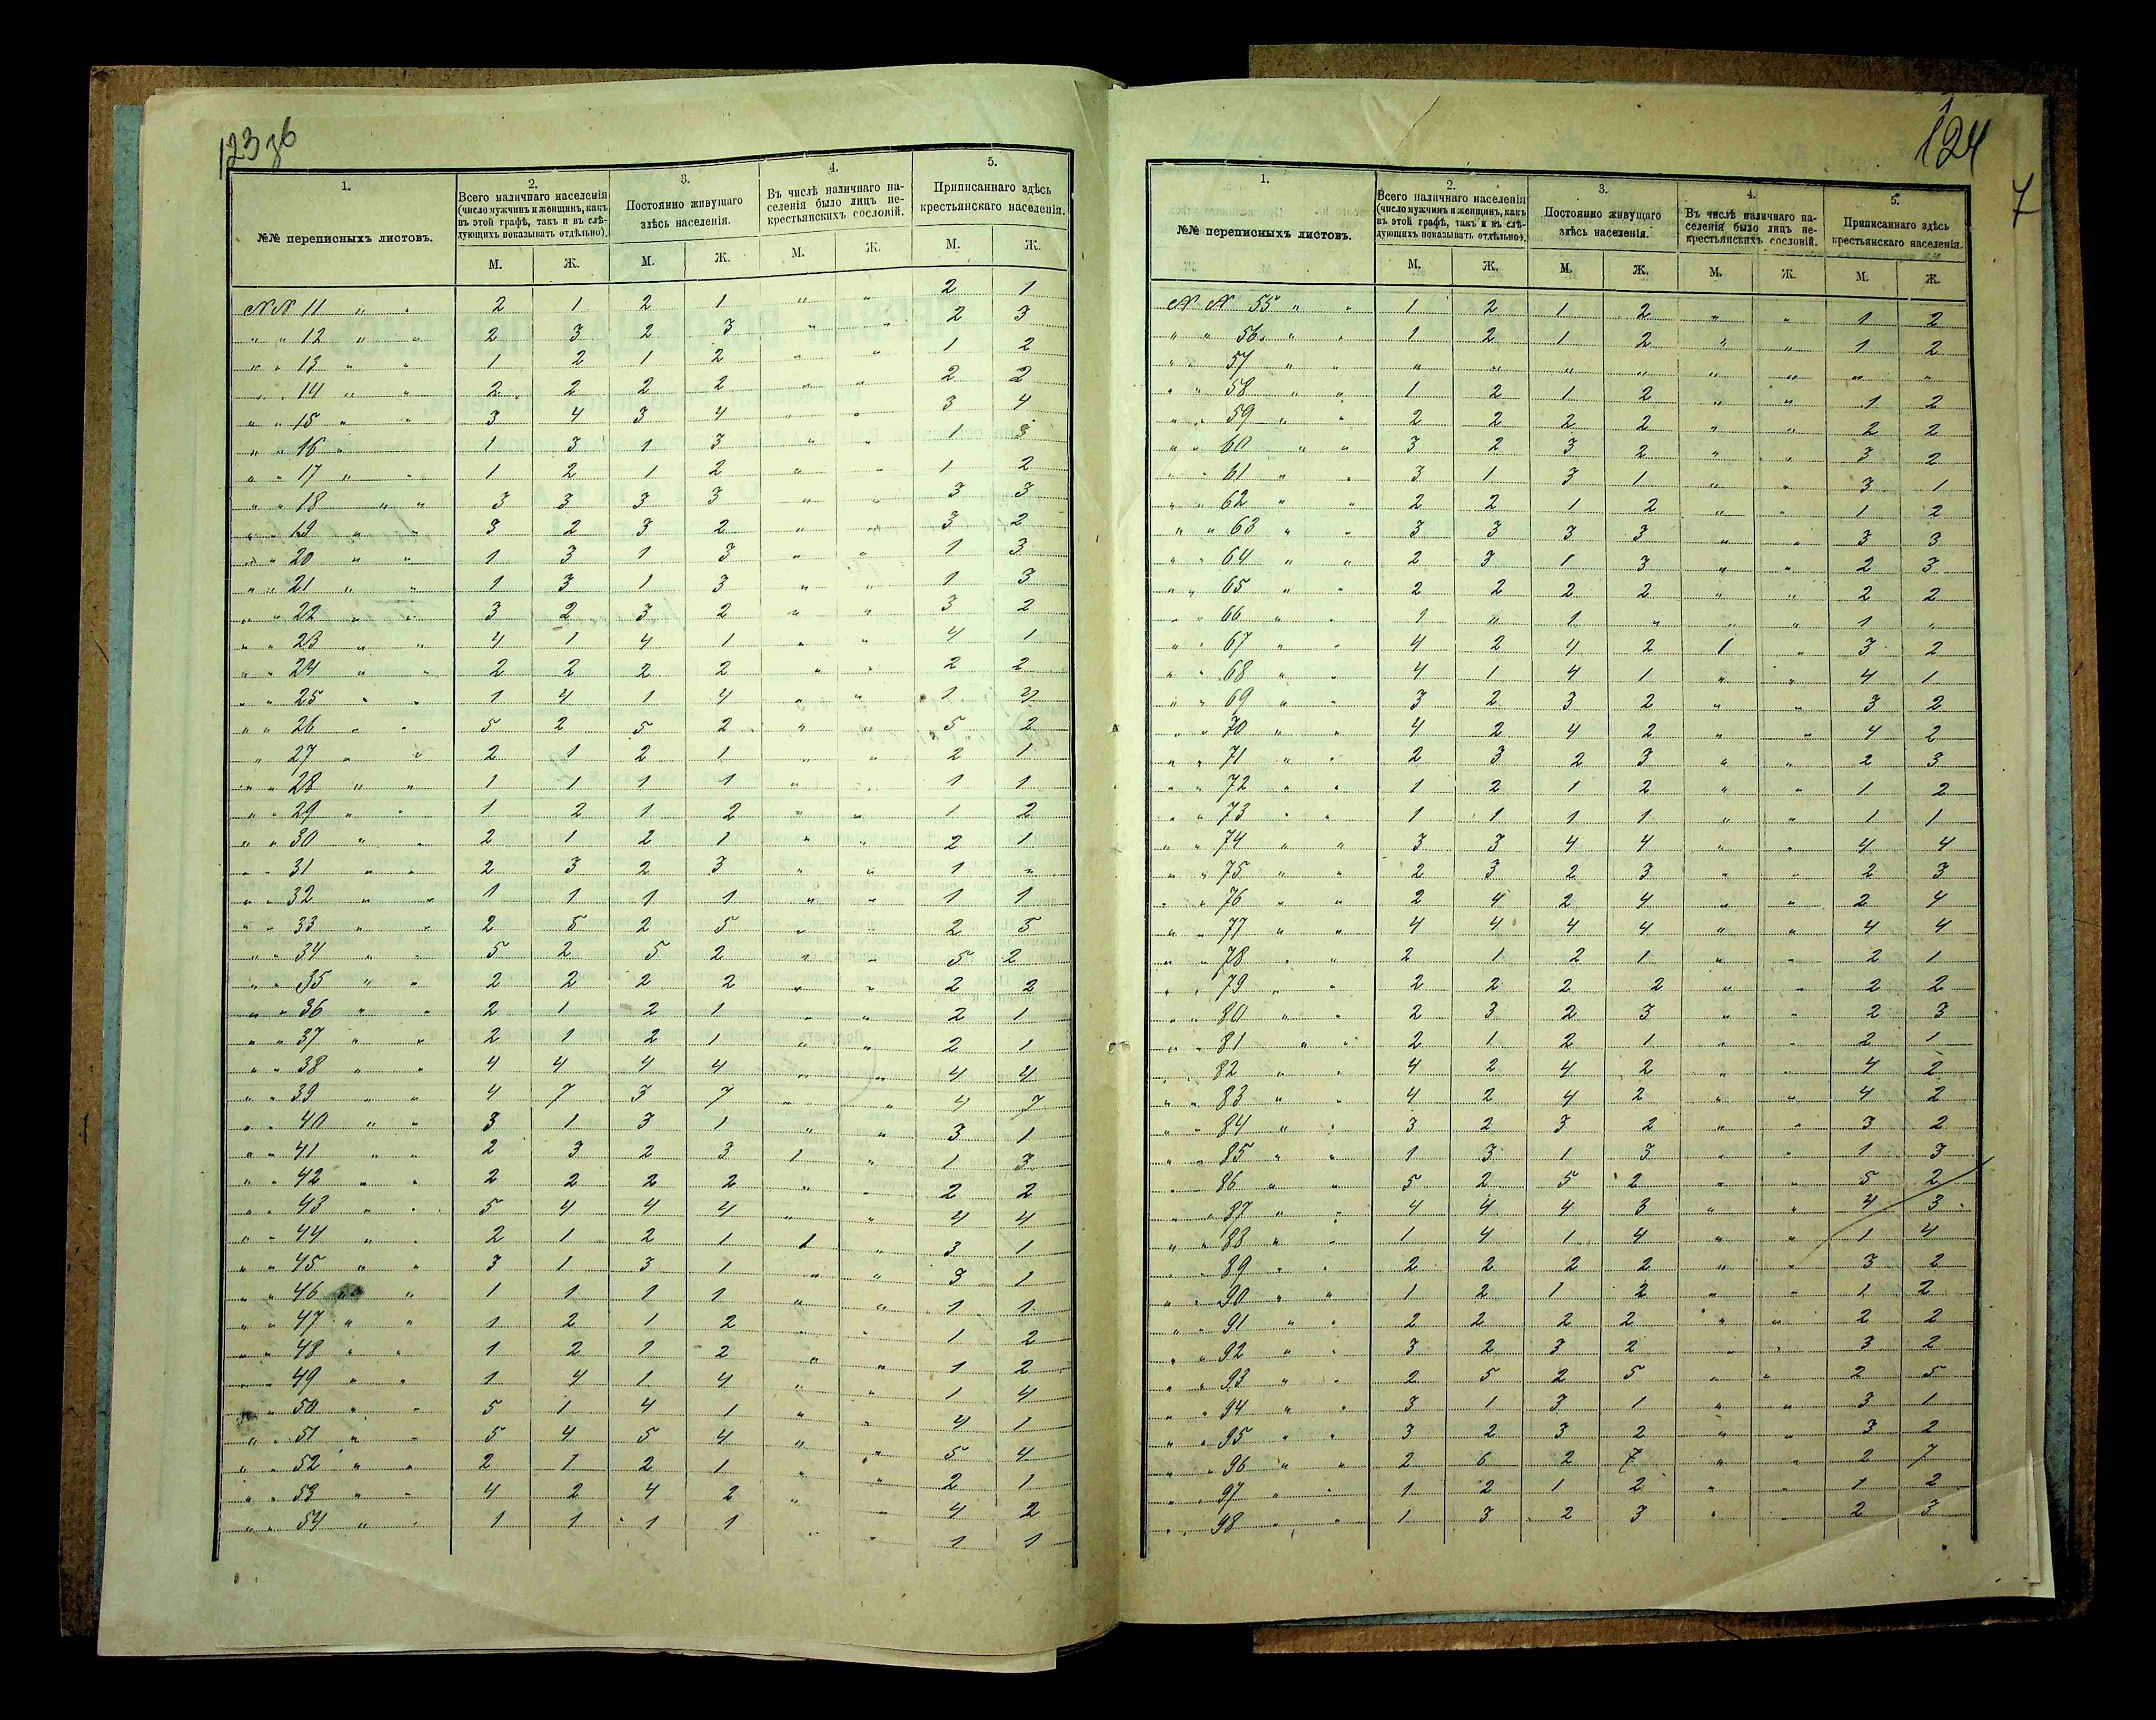 123 об
1. 2. 3. 4. 5.
№№ переписныхъ листовъ.
Всего наличнаго населенія
(число мужчинъ и женщинъ, какъ
въ этой графѣ, такъ и въ слѣ-
дующихъ показывать отдѣльно).
Постоянно живущаго
здѣсь населенія.
Въ числѣ наличнаго на-
селенія было лицъ не-
крестьянскихъ сословій.
Приписаннаго здѣсь
крестьянскаго населенія.
М. Ж. М. Ж. М. Ж. М. Ж.
№№ 11 " " 2 1 2 1 " " 2 1
" " 12 " " 2 3 2 3 " " 2 3
" " 13 " " 1 2 1 2 " " 1 2
" " 14 " " 2 2 2 2 " " 2 2
" " 15 " " 3 4 3 4 " " 3 4
" " 16 " " 1 3 1 3 " " 1 3
" " 17 " " 1 2 1 2 " " 1 2
" " 18 " " 3 3 3 3 " " 3 3
" " 19 " " 3 2 3 2 " " 3 2
" " 20 " " 1 3 1 3 " " 1 3
" " 21 " " 1 3 1 3 " " 1 3
" " 22 " " 3 2 3 2 " " 3 2
" " 23 " " 4 1 4 1 " " 4 1
" " 24 " " 2 2 2 2 " " 2 2
" " 25 " " 1 4 1 4 " " 1 4
" " 26 " " 5 2 5 2 " " 5 2
" 27 " " 2 1 2 1 " " 2 1
" " 28 " " 1 1 1 1 " " 1 1
" " 29 " " 1 2 1 2 " " 1 2
" " 30 " " 2 1 2 1 " " 2 1
" " 31 " " 2 3 2 3 " " 1 "
" " 32 " " 1 1 1 1 " " 1 1
" " 33 " " 2 5 2 5 " " 2 5
" " 34 " " 5 2 5 2 " " 5 2
" " 35 " " 2 2 2 2 " " 2 2
" " 36 " " 2 1 2 1 " " 2 1
" " 37 " " 2 1 2 1 " " 2 1
" " 38 " " 4 4 4 4 " " 4 4
" " 39 " " 4 7 3 7 " " 4 7
" " 40 " " 3 1 3 1 " " 3 1
" " 41 " " 2 3 2 3 1 " 1 3
" " 42 " " 2 2 2 2 " " 2 2
" " 43 " " 5 4 4 4 " " 4 4
" " 44 " " 2 1 2 1 1 " 3 1
" " 45 " " 3 1 3 1 " " 3 1
" " 46 " " 1 1 1 1 " " 1 1
" " 47 " " 1 2 1 2 " " 1 2
" " 48 " " 1 2 1 2 " " 1 2
" " 49 " " 1 4 1 4 " " 1 4
" " 50 " " 5 1 4 1 " " 4 1
" " 51 " " 5 4 5 4 " " 5 4
" " 52 " " 2 1 2 1 " " 2 1
" " 53 " " 4 2 4 2 " " 4 2
" " 54 " " 1 1 1 1 " " 1 1
124
7
1. 2. 3. 4. 5.
№№ переписныхъ листовъ.
Всего наличнаго населенія
(число мужчинъ и женщинъ, какъ
въ этой графѣ, такъ и въ слѣ-
дующихъ показывать отдѣльно).
Постоянно живущаго
здѣсь населенія.
Въ числѣ наличнаго на-
селенія было лицъ не-
крестьянскихъ сословій.
Приписаннаго здѣсь
крестьянскаго населенія.
М. Ж. М. Ж. М. Ж. М. Ж.
№ № 55 " " 1 2 1 2 " " 1 2
" " 56 " " 1 2 1 2 " " 1 2
" " 57 " " " " " " " " " "
" " 58 " " 1 2 1 2 " " 1 2
" " 59 " " 2 2 2 2 " " 2 2
" " 60 " " 3 2 3 2 " " 3 2
" " 61 " " 3 1 3 1 " " 3 1
" " 62 " " 2 2 1 2 " " 1 2
" " 63 " " 3 3 3 3 " " 3 3
" " 64 " " 2 3 1 3 " " 2 3
" " 65 " " 2 2 2 2 " " 2 2
" " 66 " " 1 " 1 " " " 1 "
" " 67 " " 4 2 4 2 1 " 3 2
" " 68 " " 4 1 4 1 " " 4 1
" " 69 " " 3 2 3 2 " " 3 2
" " 70 " " 4 2 4 2 " " 4 2
" " 71 " " 2 3 2 3 " " 2 3
" " 72 " " 1 2 1 2 " " 1 2
" " 73 " " 1 1 1 1 " " 1 1
" " 74 " " 3 3 4 4 " " 4 4
" " 75 " " 2 3 2 3 " " 2 3
" " 76 " " 2 4 2 4 " " 2 4
" " 77 " " 4 4 4 4 " " 4 4
" " 78 " " 2 1 2 1 " " 2 1
" " 79 " " 2 2 2 2 " " 2 2
" " 80 " " 2 3 2 3 " " 2 3
" " 81 " " 2 1 2 1 " " 2 1
" " 82 " " 4 2 4 2 " " 4 2
" " 83 " " 4 2 4 2 " " 4 2
" " 84 " " 3 2 3 2 " " 3 2
" " 85 " " 1 3 1 3 " " 1 3
" " 86 " " 5 2 5 2 " " 5 2
" " 87 " " 4 4 4 3 " " 4 3
" " 88 " " 1 4 1 4 " " 1 4
" " 89 " " 2 2 2 2 " " 3 2
" " 90 " " 1 2 1 2 " " 1 2
" " 91 " " 2 2 2 2 " " 2 2
" " 92 " " 3 2 3 2 " " 3 2
" " 93 " " 2 5 2 5 " " 2 5
" " 94 " " 3 1 3 1 " " 3 1
" " 95 " " 3 2 3 2 " " 3 2
" " 96 " " 2 6 2 7 " " 2 7
" " 97 " " 1 2 1 2 " " 1 2
" " 98 " " 1 3 2 3 " " 2 3